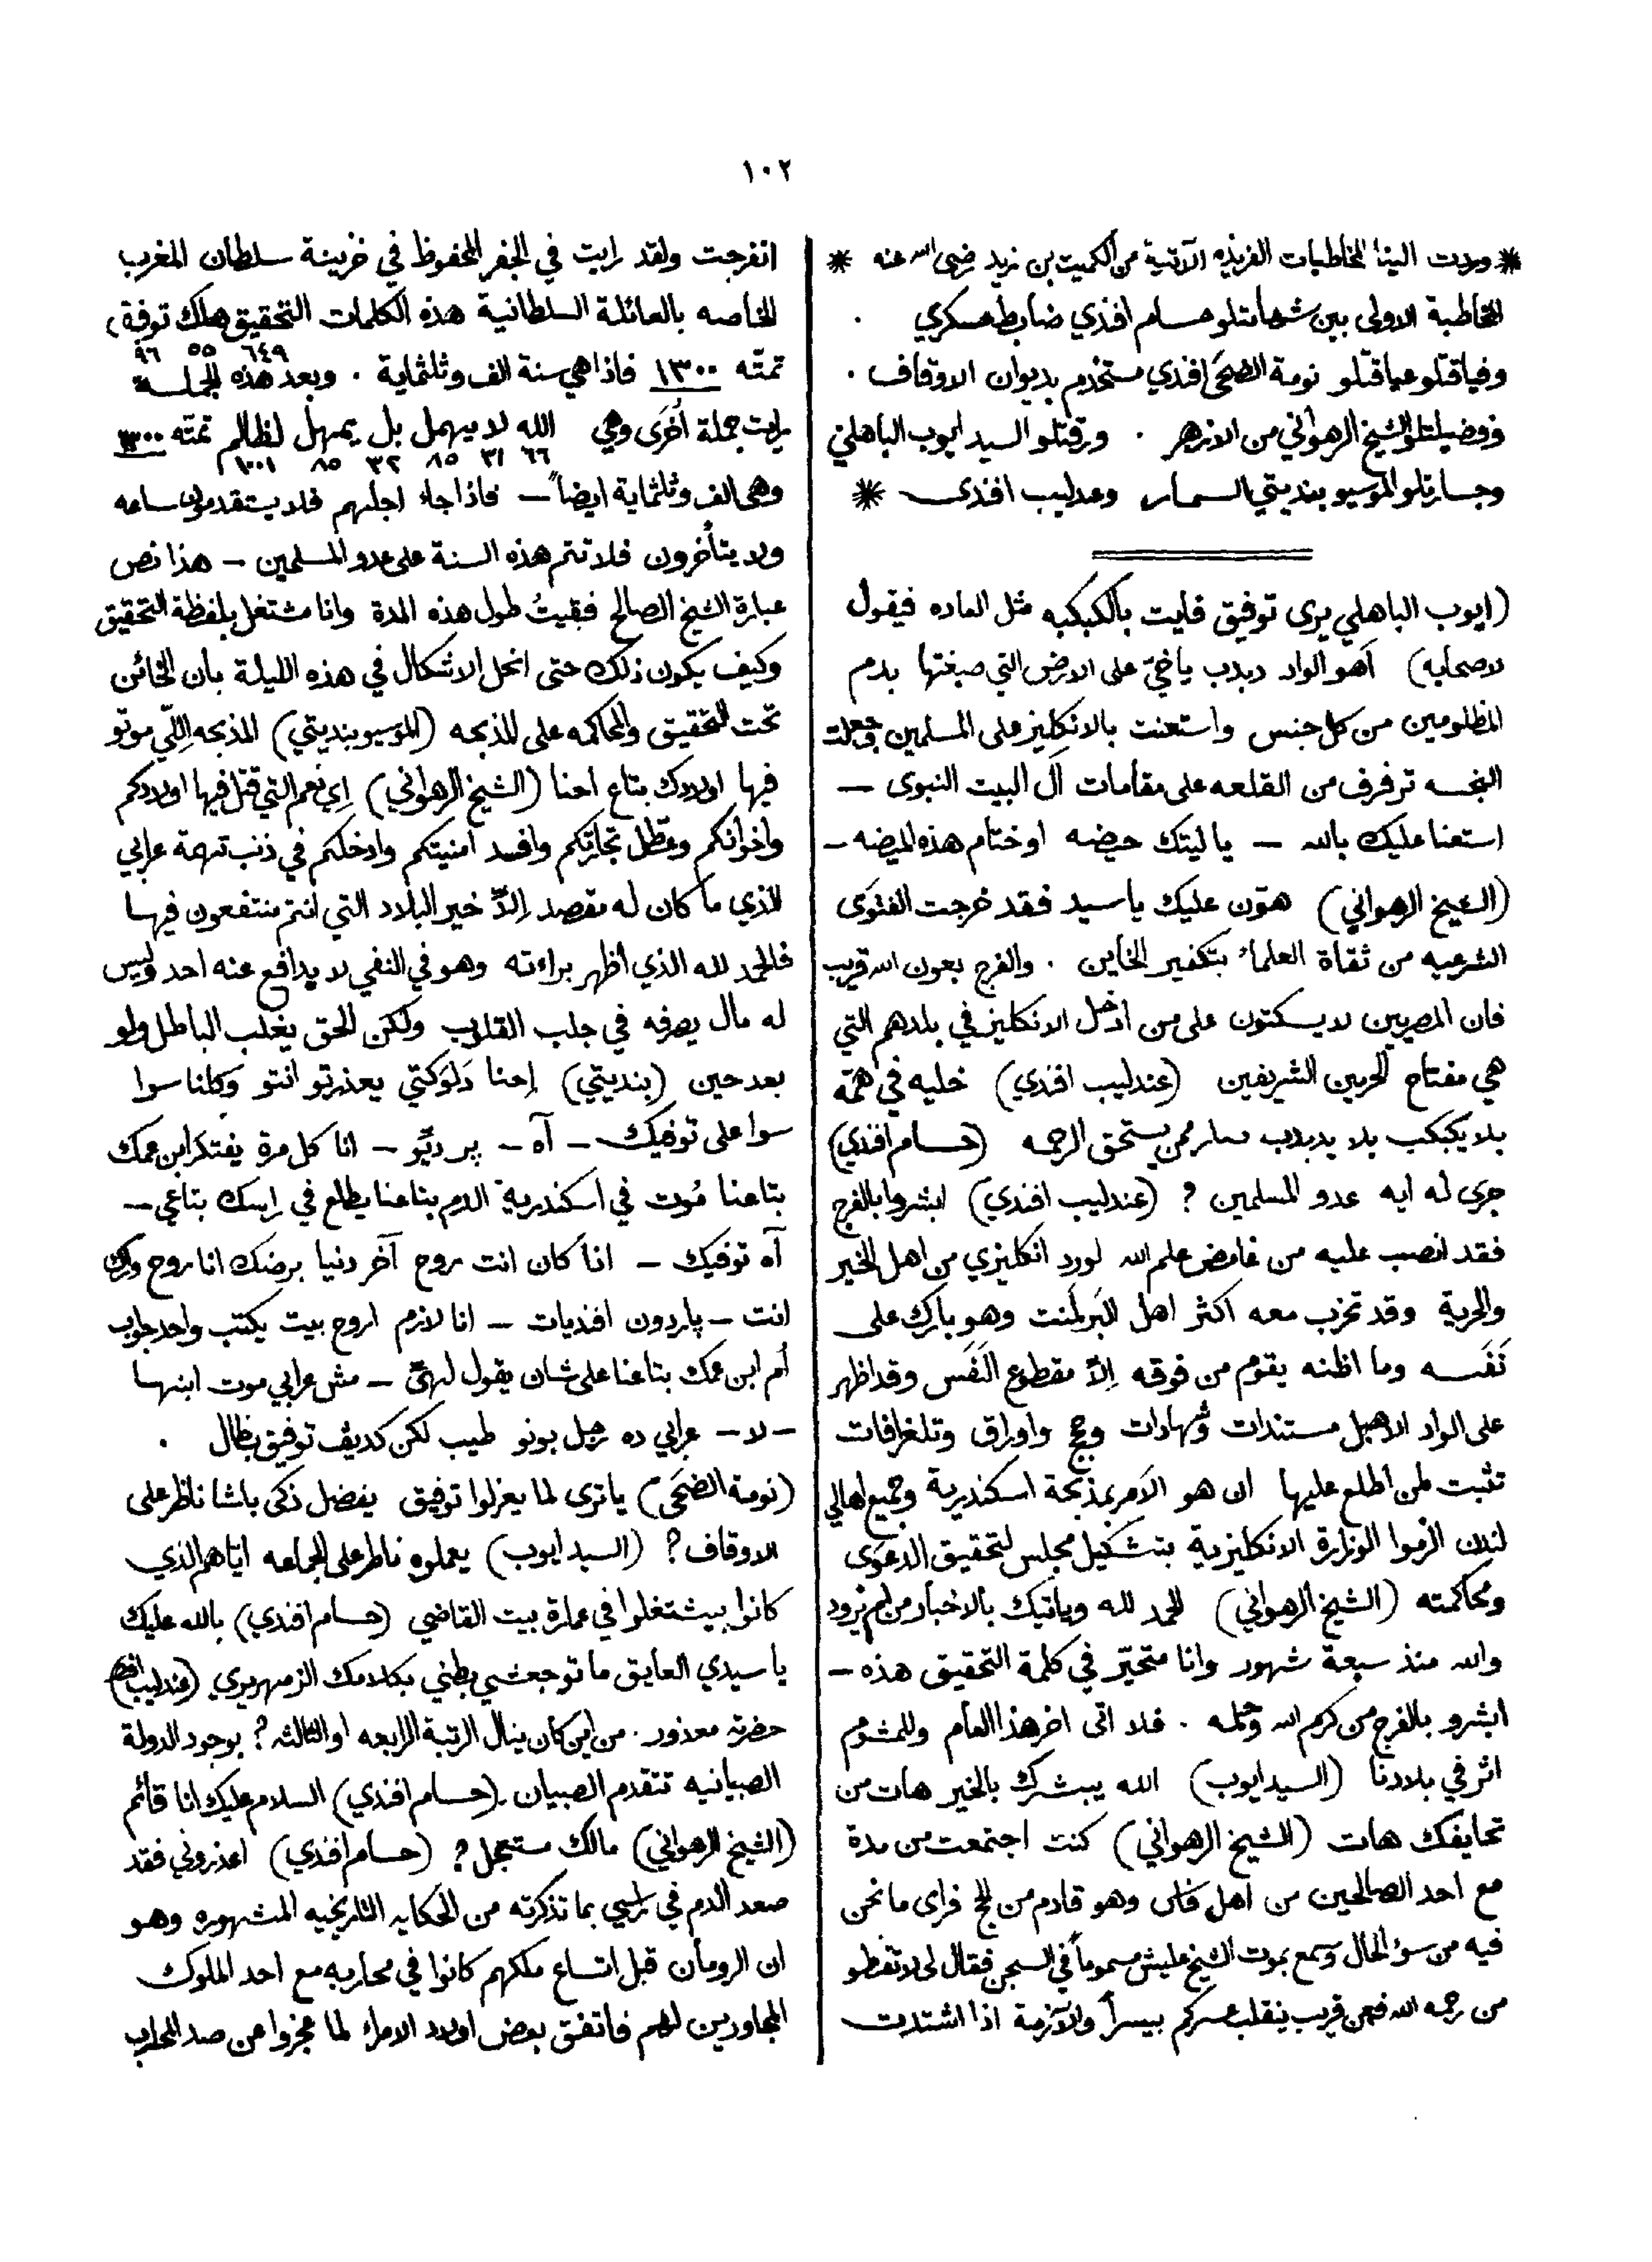 ١٠٢
* وردت الينا المخاطبات الفريذه الآتية من الكميت بن زيد رضى الله عنه *
المخاطبة الاولى بين شهامتلو حسام افندي ضابط عسكري .
وفياقتلو عياقتلو نومة الضحَى افندي مستخدم بديوان الاوقاف .
وفضيلتلو الشيخ الرهواني من الازهر . ورقتلو السيد ايوب الباهلي
وجسارتلو الموسيو بنديتي السمسار وعندليب افندى *
(ايوب الباهلي يرى توفيق فايت بالكبكبه مثل العاده فيقول
لاصحابه) آهو الواد دبدب ياخيّ على الارض التي صبغتها بدم
المظلومين من كل جنس واستعنت بالانكليز على المسلمين وجعلت
النجسه ترفرف من القلعه على مقامات آل البيت النبوى —
استعنا عليك بالله — يا ليتك حيضه او ختام هذه الميضه —
(الشيخ الرهواني) هوّن عليك يا سيد فقد خرجت الفتوَى
الشرعيه من ثقاة العلماء بتكفير الخاين . والفرج بعون الله قريب
فان المصريين لا يسكتون على من ادخل الانكليز في بلادهم التي
هي مفتاح الحرمين الشريفين (عندليب افندي) خليه في همّه
بلا يكبكب بلا يدبدب ممن يستحق الرحمه (حسام افندي)
جرى له ايه عدو المسلمين ? (عندليب افندي) ابشروا بالفرج
فقد انصب عليه من غامض علم الله لورد انكليزي من اهل الخير
والحرية وقد تحزب معه اكثر اهل البَرلَمنت وهو بارك على
نَفَسه وما اظنه يقوم من فوقه اِلاّ مقطوع النَفَس وقد اظهر
على الواد الاهبل مستندات وشهادات وحجج واوراق وتلغرافات
تثبت لمن اطلع عليها ان هو الآمر بمذبحة اسكندرية وجميع اهالي
لندن الزموا الوزارة الانكليزية بتشكيل مجلس لتحقيق الدعوَى
ومحاكمته (الشيخ الرهواني) الحمد لله وياتيك بالاخبار من لم تزود
والله منذ سبعة شهور وانا متحيّر في كلمة التحقيق هذه —
ابشرو بالفرج من كرم الله وحلمه . فلا اتى اخر هذا العام وللمشوم
اثر في بلادنا (السيد ايوب) الله يبشرك بالخير هات من
تحايفك هات (الشيخ الرهواني) كنت اجتمعت من مدة
مع احد الصالحين من اهل فاس وهو قادم من الحج فراى ما نحن
فيه من سؤ الحال وسمع بموت الشيخ عليش مسموماً في السجن فقال لى لا تقنطو
من رحمه الله فعن قريب ينقلب عسركم بيسراً والآزمة اذا اشتدت
انفرجت ولقد رايت في الجفر المحفوظ في خزينة سلطان المغرب
الخاصه بالعائلة السلطانية هذه الكلمات التحقيق هلاك توفيق
٦٤٩ ٥٥ ٩٦
تمتّه ١٣٠٠ فاذا هي سنة الف وثلثماية . وبعد هذه الجملة
رايت جملة أخرَى وهي الله لا يهمل بل يمهل لظالم تمتّه ١٣٠٠
٦٦ ٣١ ٨٥ ٣٢ ٨٥ ١٠٠١
وهى الف وثلثماية ايضاً — فاذا جاء اجلهم فلا يستقدمون ساعه
ولا يتأخرون فلا تتم هذه السنة على عدو المسلمين — هذا نص
عبارة الشيخ الصالح فبقيتُ طول هذه المدة وانا مشتغل بلفظة التحقيق
وكيف يكون ذلك حتى انحل الاشكال في هذه الليلة بان الخائن
تحت التحقيق والمحاكمه على المذبحه (الموسيو بنديتي) المذبحه اِللّي موتو
فيها اولادك بتاع احنا (الشيخ الرهواني) اِي نعم التي قتل فيها اولادكم
واخوانكم وعطّل تجارتكم وافسد امنيتكم وادخلكم في ذنب تهمة عرابي
الذي ما كان له مقصد اِلاّ خير البلاد التي انتم منتفعون فيها
فالحمد لله الذي اظهر براءته وهو في النفي لا يدافع عنه احد وليس
له مال يصرفه في جلب القلوب ولكن الحق يغلب الباطل ولو
بعد حين (بنديتي) اِحنا دَلوَكتي يعذرتو انتو وكلنا سوا
سوا على توفيك — آه — پر ديّو — انا كل مرة يفتكر ابن عمك
بتاعنا مُوت في اسكندرية الدم بتاعنا يطلع في راسك بتاعي —
آه توفيك — انا كان انت روح آخر دنيا برضك انا روح وراك
انت — پاردون افنديات — انا لازم اروح بيت يكتب واحد جواب
اُم ابن عمك بتاعنا على شان يقول لهيّ — مش عرابي موت ابنها
— لا — عرابي ده رجل بونو طيب لكن كديڤ توفيق بطال .
(نومة الضحَى) يا ترى لما يعزلوا توفيق يفضل ذكى باشا ناظر على
الاوقاف ? (السيد ايوب) يعملوه ناطر على الجماعه اياهم الذي
كانوا بيشتغلوا في عمارة بيت القاضي (حسام افندي) بالله عليك
يا سيدي العايق ما توجعشي بطني بكلامك الزمهريري (عندليب افندي)
حضرته معذور . من اين كان ينال الرتبة الرابعه او الثالثه ? بوجود الدولة
الصبيانيه تتقدم الصبيان . (حسام افندي) السلام عليك انا قائم
(الشيخ الرهواني) مالك مستعجل ? (حسام افندي) اعذروني فقد
صعد الدم في راسي بما تذكرته من الحكايه التاريخيه المشهوره وهو
ان الرومان قبل اتساع ملكهم كانوا في محاربه مع احد الملوك
المجاورين لهم فاتفق بعض اولاد الامراء لما عجزوا عن صد المحارب